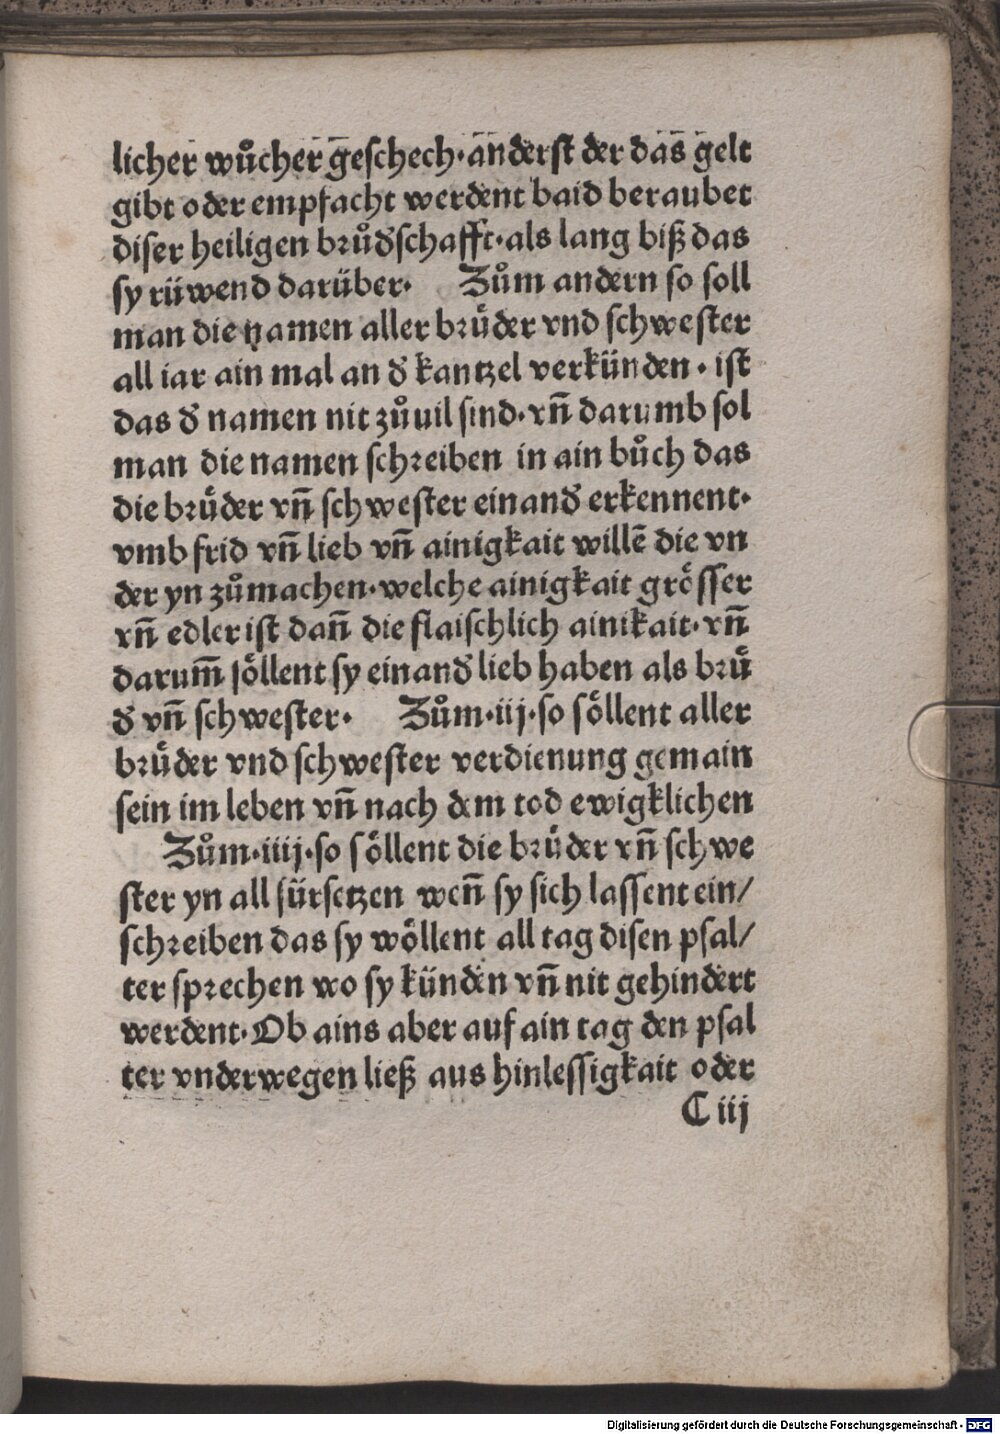 licher wůcher geschech·anderst der das gelt
gibt oder empfacht werdent baid beraubet
diser heiligen bruͦdschafft·als lang biß das
sy rüwend darüber· Zům andern so soll
man die namen aller bruͤder vnd schwester
all iar ain mal an đ kantzel verkünden·ist
das đ namen nit zůuil sind·vn̄ darumb sol
man die namen schreiben in ain bůch das
die bruͤder vn̄ schwester einanđ erkennent·
vmb frid vn̄ lieb vn̄ ainigkait willē die vn
der yn zůmachen·welche ainigkait groͤsser
vn̄ edler ist dan̄ die flaischlich ainikait·vn̄
darum̄ soͤllent sy einanđ lieb haben als bruͤ
đ vn̄ schwester· Zům·iij·so soͤllent aller
bruͤder vnd schwester verdienung gemain
sein im leben vn̄ nach dem tod ewigklichen
Zům·iiij·so soͤllent die bruͤder vn̄ schwe
ster yn all fürsetzen wen̄ sy sich lassent ein/
schreiben das sy woͤllent all tag disen psal/
ter sprechen wo sy künden vn̄ nit gehindert
werdent·Ob ains aber auf ain tag den psal
ter vnderwegen ließ aus hinlessigkait oder
C iij
Digitalisierung gefördert durch die Deutsche Forschungsgemeinschaft - DFG